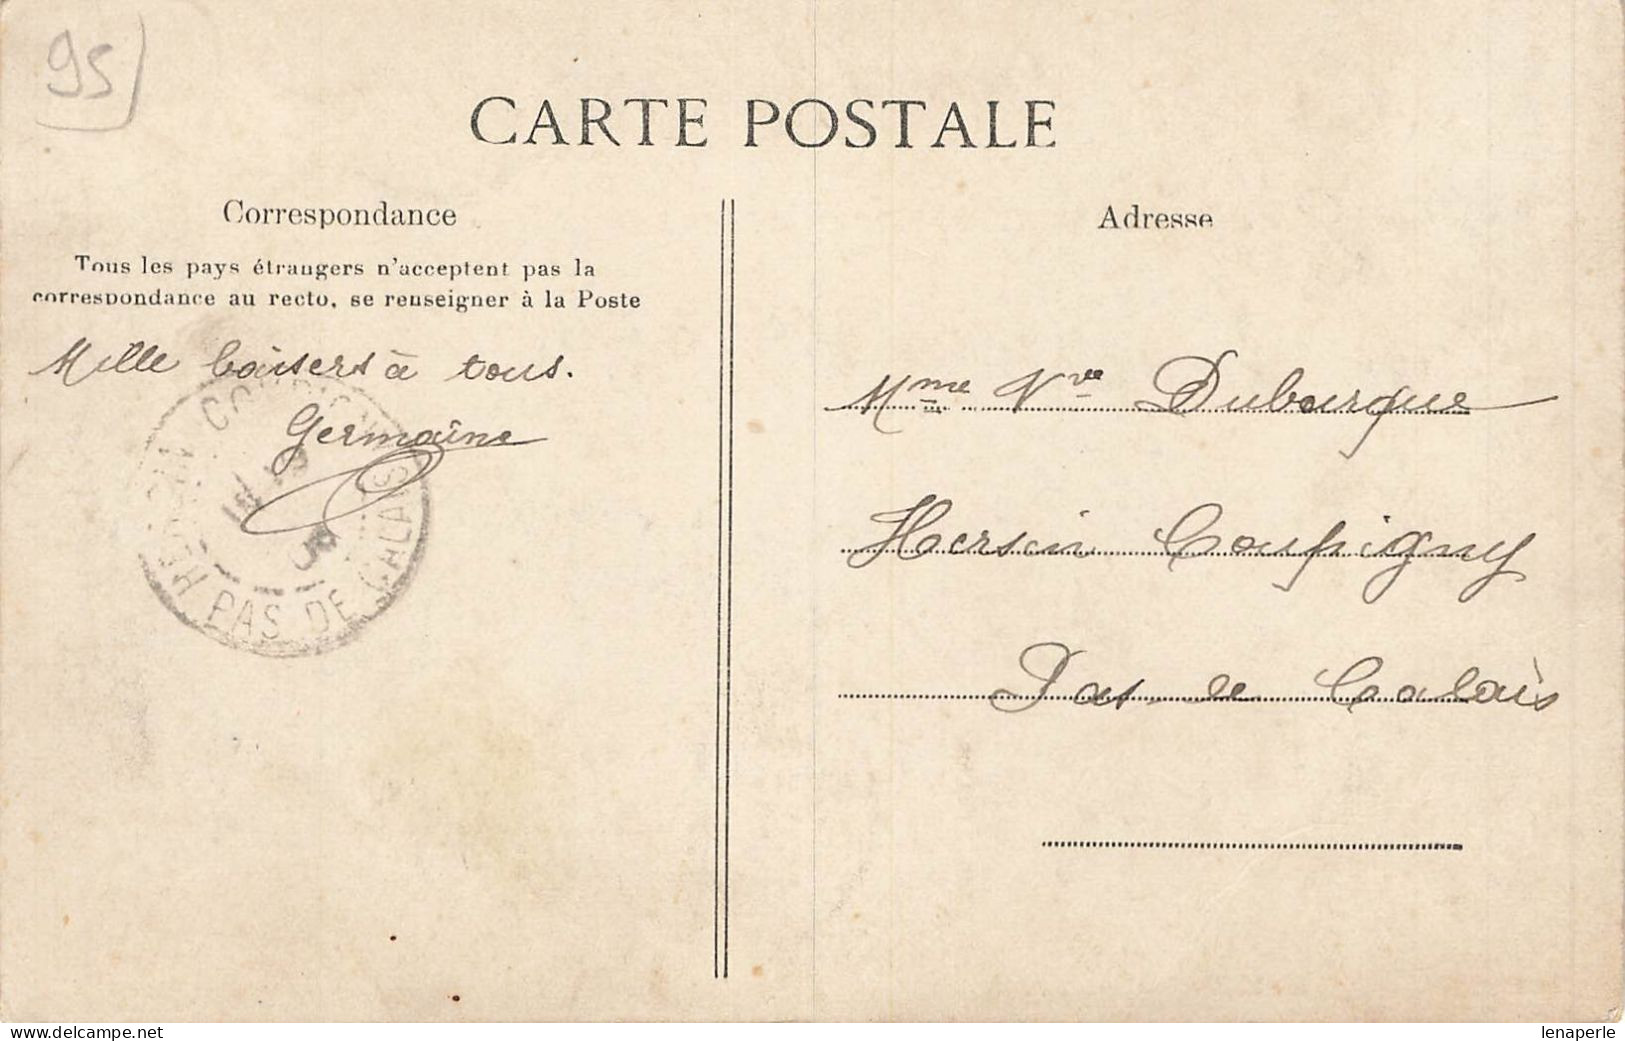 95
CARTE POSTALE
Correspondance
Tous les pays étrangers n'acceptent pas la
correspondance au recto, se renseigner à la Poste
Mille baisers à tous.
Germaine
HERSIN COUPIGNY
PAS DE CALAIS
Adresse
Mme Vve Dubarque
Hersin Coupigny
Pas-de Calais
delcampe.net
lenaperle